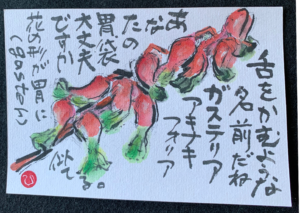 舌をかむような
名前だね
ガステリア
アキナキ
フォリア
あなたの
胃袋
大丈夫
ですか
花の形が胃に
(gaster)
似てる。